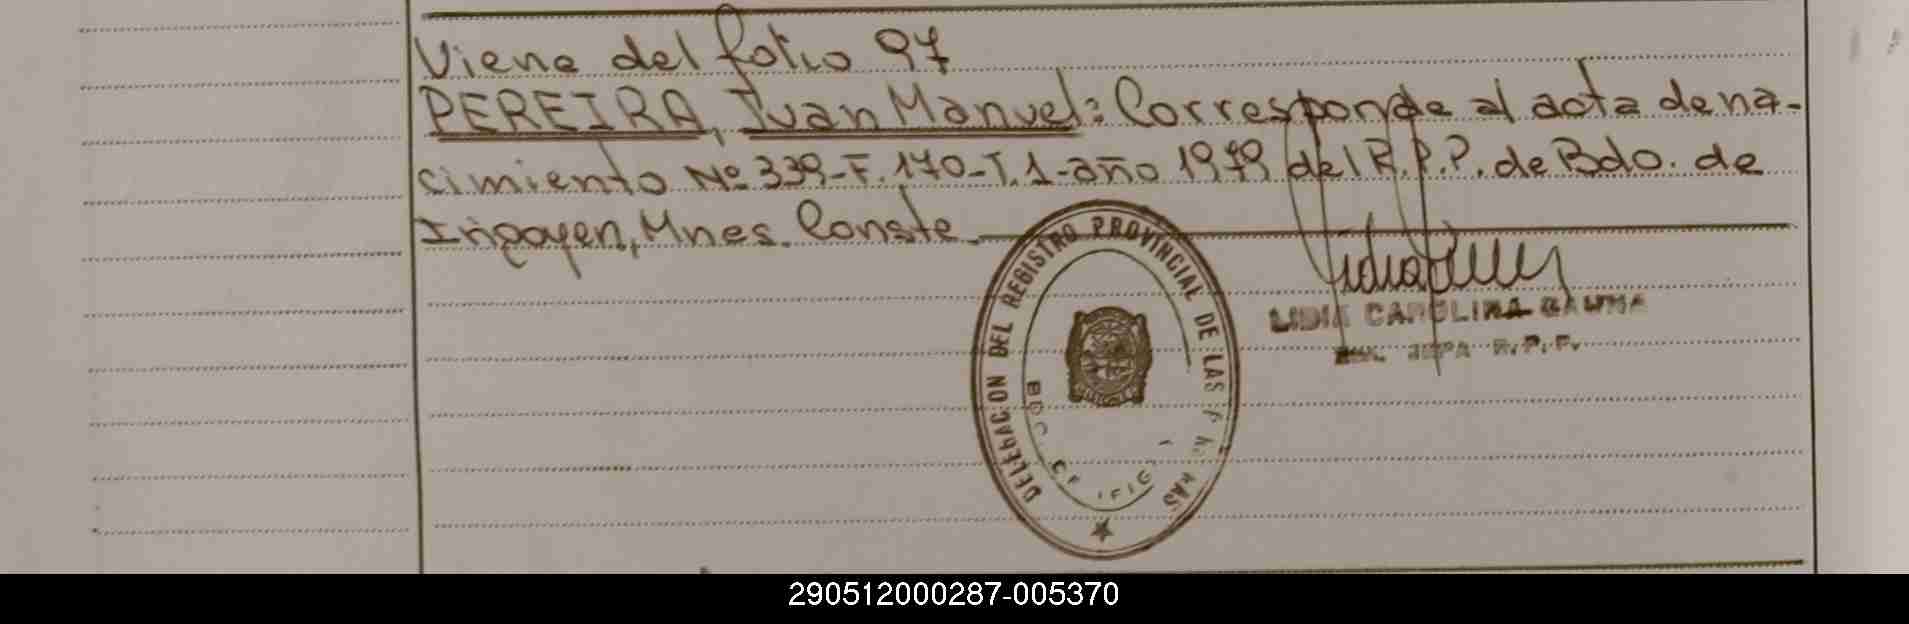 Viene del folio 97
PEREIRA, Juan Manuel: Corresponde al acta de na-
cimiento Nº 339-F.170-T.1-año 1979 del R.P.P. de Bdo. de
Irigoyen, Mnes. Conste.
DELEGACION DEL REGISTRO PROVINCIAL DE LAS
LIDIA CAROLINA GAUNA
R.P.P.
290512000287-005370